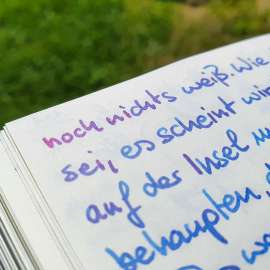 noch nichts weiß. Wie
sei, es scheint
auf der Insel
behaupten,